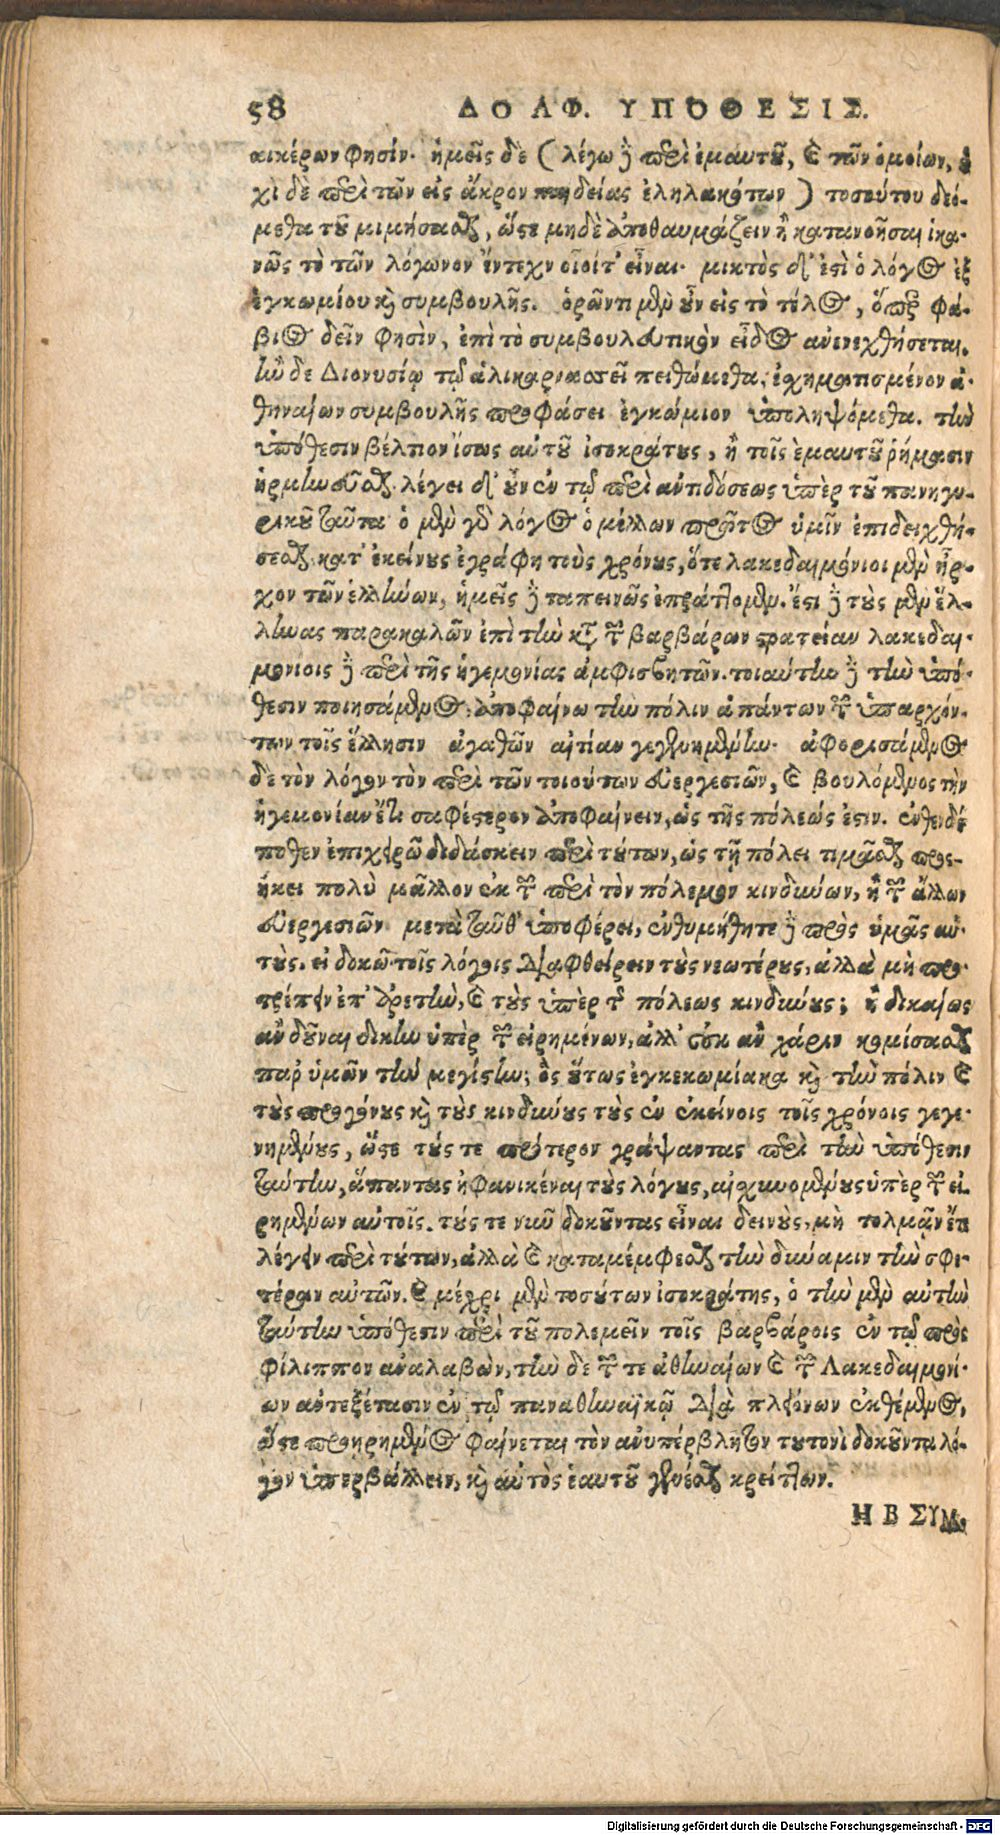 58 ΔΟΛΦ. ΥΠΟΘΕΣΙΣ.
κικέρων φησίν. ἡμεῖς δὲ (λέγω ἢ περὶ ἐμαυτοῦ, καὶ τῶν ὁμοίων, οὐ
χὶ δὲ περὶ τῶν εἰς ἄκρον παιδείας ἐληλακότων) τοσούτου δεό-
μεθα τοῦ μιμήσασθαι, ὥστε μηδὲ ἀποθαυμάζειν ἢ κατανοῆσαι ἱκα-
νῶς τὸ τῶν λόγων ὂν ἔντεχν οἷοίτ' εἶναι. μικτὸς δ' ἐστὶ ὁ λόγος ἐξ
ἐγκωμίου καὶ συμβουλῆς. ὁρῶντι μὲν οὖν εἰς τὸ τέλος, ὅπερ φά-
βιος δεῖν φησὶν, ἐπὶ τὸ συμβουλευτικὸν εἶδος ἀνενεχθήσεται.
ἢν δε Διονυσίῳ τῷ ἁλικαρνασσεῖ πειθώμεθα, ἐσχηματισμένον ἀ-
θηναίων συμβουλῆς προφάσει ἐγκώμιον ὑποληψόμεθα. τὴν
ὑπόθεσιν βέλτιον ἴσως αὐτοῦ ἰσοκράτους, ἢ τοῖς ἐμαυτοῦ ῥήμασιν
ἑρμηνεῦσαι. λέγει δ' οὖν ἐν τῷ περὶ ἀντιδόσεως ὑπὲρ τοῦ πανηγυ-
ρικοῦ ταῦτα ὁ μὲν γὰρ λόγος ὁ μέλλων πρῶτος ὑμῖν ἐπιδειχθή-
σεσθαι κατ' ἐκείνους ἐγράφη τοὺς χρόνους, ὅτε λακεδαιμόνιοι μὲν ἦρ-
χον τῶν ἑλλήνων, ἡμεῖς δὲ ταπεινῶς ἐπράττομεν. ἔστι δὲ τοὺς μὲν ἕλ-
ληνας παρακαλῶν ἐπὶ τὴν κατὰ τῶν βαρβάρων στρατείαν λακεδαι-
μονίοις δὲ περὶ τῆς ἡγεμονίας ἀμφισβητῶν. τοιαύτην δὲ τὴν ὑπό-
θεσιν ποιησάμενος, ἀποφαίνω τὴν πόλιν ἁπάντων τῶν ὑπαρχόν-
των τοῖς ἕλλησιν ἀγαθῶν αἰτίαν γεγενημένην. ἀφορισάμενος
δὲ τὸν λόγον τὸν περὶ τῶν τοιούτων εὐεργεσιῶν, καὶ βουλόμενος τὴν
ἡγεμονίαν ἔτι σαφέστερον ἀποφαίνειν, ὡς τῆς πόλεώς ἐστιν. ἐνθένδέ
ποθεν ἐπιχειρῶ διδάσκειν περὶ τούτων, ὡς τῇ πόλει τιμᾶσθαι προσ-
ήκει πολὺ μᾶλλον ἐκ τῶν περὶ τὸν πόλεμον κινδύνων, ἢ τῶν ἄλλων
εὐεργεσιῶν μετὰ ταῦθ' ὑποφέρει, ἐνθυμήθητε δὲ πρὸς ὑμᾶς αὐ-
τοὺς, εἰ δοκῶ τοῖς λόγοις διαφθείρειν τοὺς νεωτέρους, ἀλλὰ μὴ προ-
τρέπειν ἐπ' ἀρετὴν, καὶ τοὺς ὑπὲρ τῆς πόλεως κινδύνους; ἢ δικαίως
ἂν δοῦναι δίκην ὑπὲρ τῶν εἰρημένων, ἀλλ' οὐκ ἂν χάριν κομίσασθαι
παρ' ὑμῶν τὴν μεγίστην; ὃς οὕτως ἐγκεκωμίακα καὶ τὴν πόλιν καὶ
τοὺς προγόνους καὶ τοὺς κινδύνους τοὺς ἐν ἐκείνοις τοῖς χρόνοις γεγε-
νημένους, ὥστε τούς τε πρότερον γράψαντας περὶ τὴν ὑπόθεσιν
ταύτην, ἅπαντας ἠφανικέναι τοὺς λόγους, αἰσχυνομένους ὑπὲρ τῶν εἰ-
ρημένων αὐτοῖς. τούς τε νῦν δοκοῦντας εἶναι δεινοὺς, μὴ τολμᾷν ἔτι
λέγειν περὶ τούτων, ἀλλὰ καὶ καταμέμφεσθαι τὴν δύναμιν τὴν σφε-
τέραν αὐτῶν. καὶ μέχρι μὲν τοσούτων ἰσοκράτης, ὁ τὴν μὲν αὐτὴν
ταύτην ὑπόθεσιν περὶ τοῦ πολεμεῖν τοῖς βαρβάροις ἐν τῷ πρὸς
φίλιππον ἀναλαβὼν, τὴν δε τῶν τε ἀθηναίων καὶ τῶν Λακεδαιμονί-
ων ἀντεξέτασιν ἐν τῷ παναθηναϊκῷ διὰ πλειόνων ἐκθέμενος,
ὥστε προῃρημένος φαίνεται τὸν ἀνυπέρβλητον τουτονὶ δοκοῦντα λό-
γον ὑπερβάλλειν, καὶ αὐτὸς ἑαυτοῦ γενέσθαι κρείττων.
Η Β ΣΥΜ
Digitalisierung gefördert durch die Deutsche Forschungsgemeinschaft - DFG